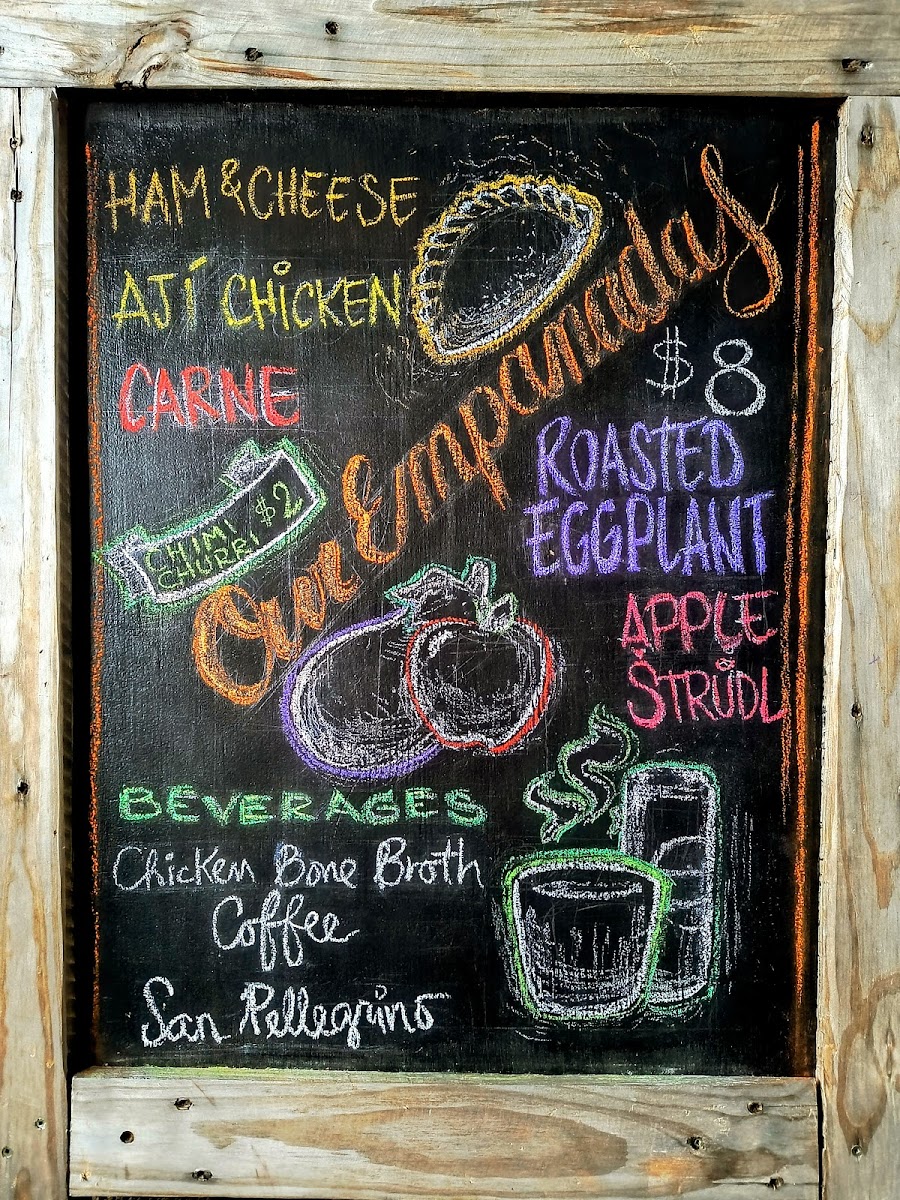 HAM & CHEESE
AJÍ CHICKEN
CARNE
CHIMI
CHURRI $2
Our Empanadas
$8
ROASTED
EGGPLANT
APPLE
STRÜDL
BEVERAGES
Chicken Bone Broth
Coffee
San Pellegrino